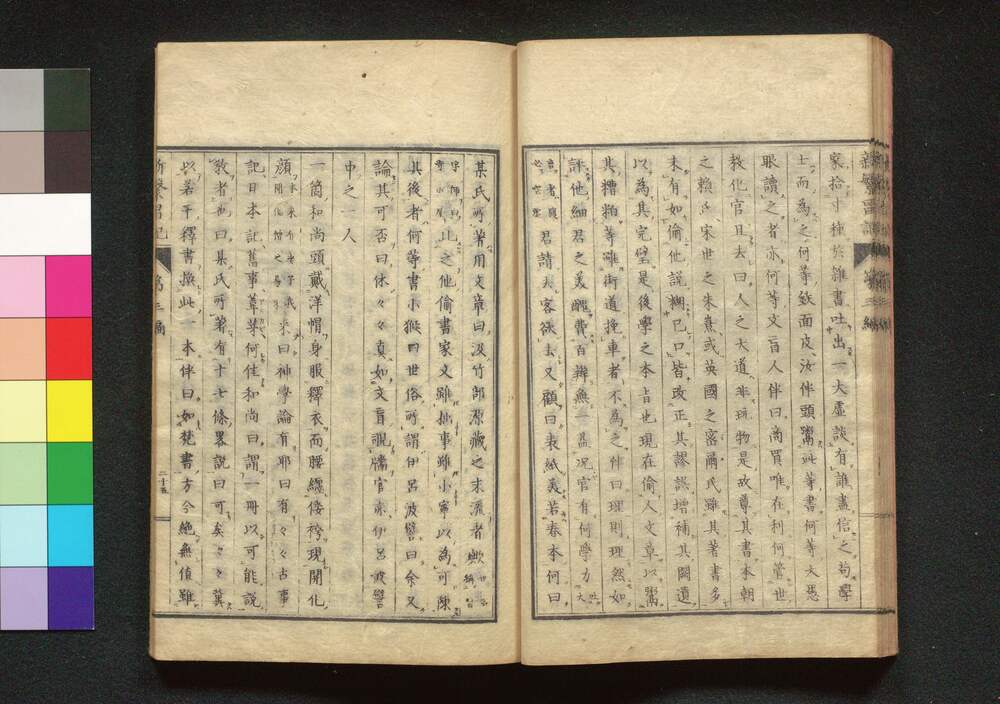 家拾寸種於雜書吐出一大虛談有誰盡信之苟學
士而為之何等鐵面皮汝伴頭鬻此等書何等大愚
眼讀之者亦何等文盲人伴曰商買唯在利何管世
教化官且去曰人之大道非玩物是故尊其書本朝
之賴氏宋世之朱熹或英國之密爾氏雖其著書多
未有如倫他說糊己口皆改正其謬誤增補其闕遺
以為其完璧是後學之本旨也現在倫人文章以鬻
其糟粕等雖街道挽車者不為之伴曰理則理然如
評他細君之美醜費百辯無一益況官有何學力
君請去客欲去又顧曰表紙美若春本何曰
某氏所著用文章曰汲竹部原藏之末流者歟
止之他倫書家文雖拙事雖小寧以為可陳
其後者何等書小猴曰世俗所謂伊呂波譬曰余又
論其可否曰休々々真如文盲覗牖官亦伊呂波譬
中之一人
一箇和尚頭戴洋帽身服釋衣而腰纏倭袴現開化
顏 來曰神學論有耶曰有々々古事
記日本記舊事等何佳和尚曰謂一冊以可能說
教者也曰某氏所著有十七條畧說曰可矣々々冀
以若干釋書換此一本伴曰如梵書方今絕無價雖
第三編
二十五